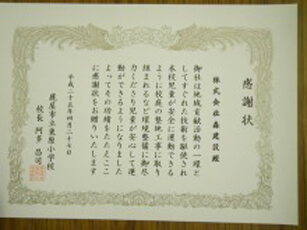 感謝状
株式会社森建設殿
御社は地域貢献活動の一環と
してすぐれた技術を駆使され
本校児童が安全に運動できる
ように校庭の整地工事に取り
組まれるなど環境整備に御尽
力くださり児童が安心して運
動ができるようになりました
よってその功績をたたえここ
に感謝状をお贈りいたします
平成二十五年四月二十七日
鹿屋市立東原小学校
校長